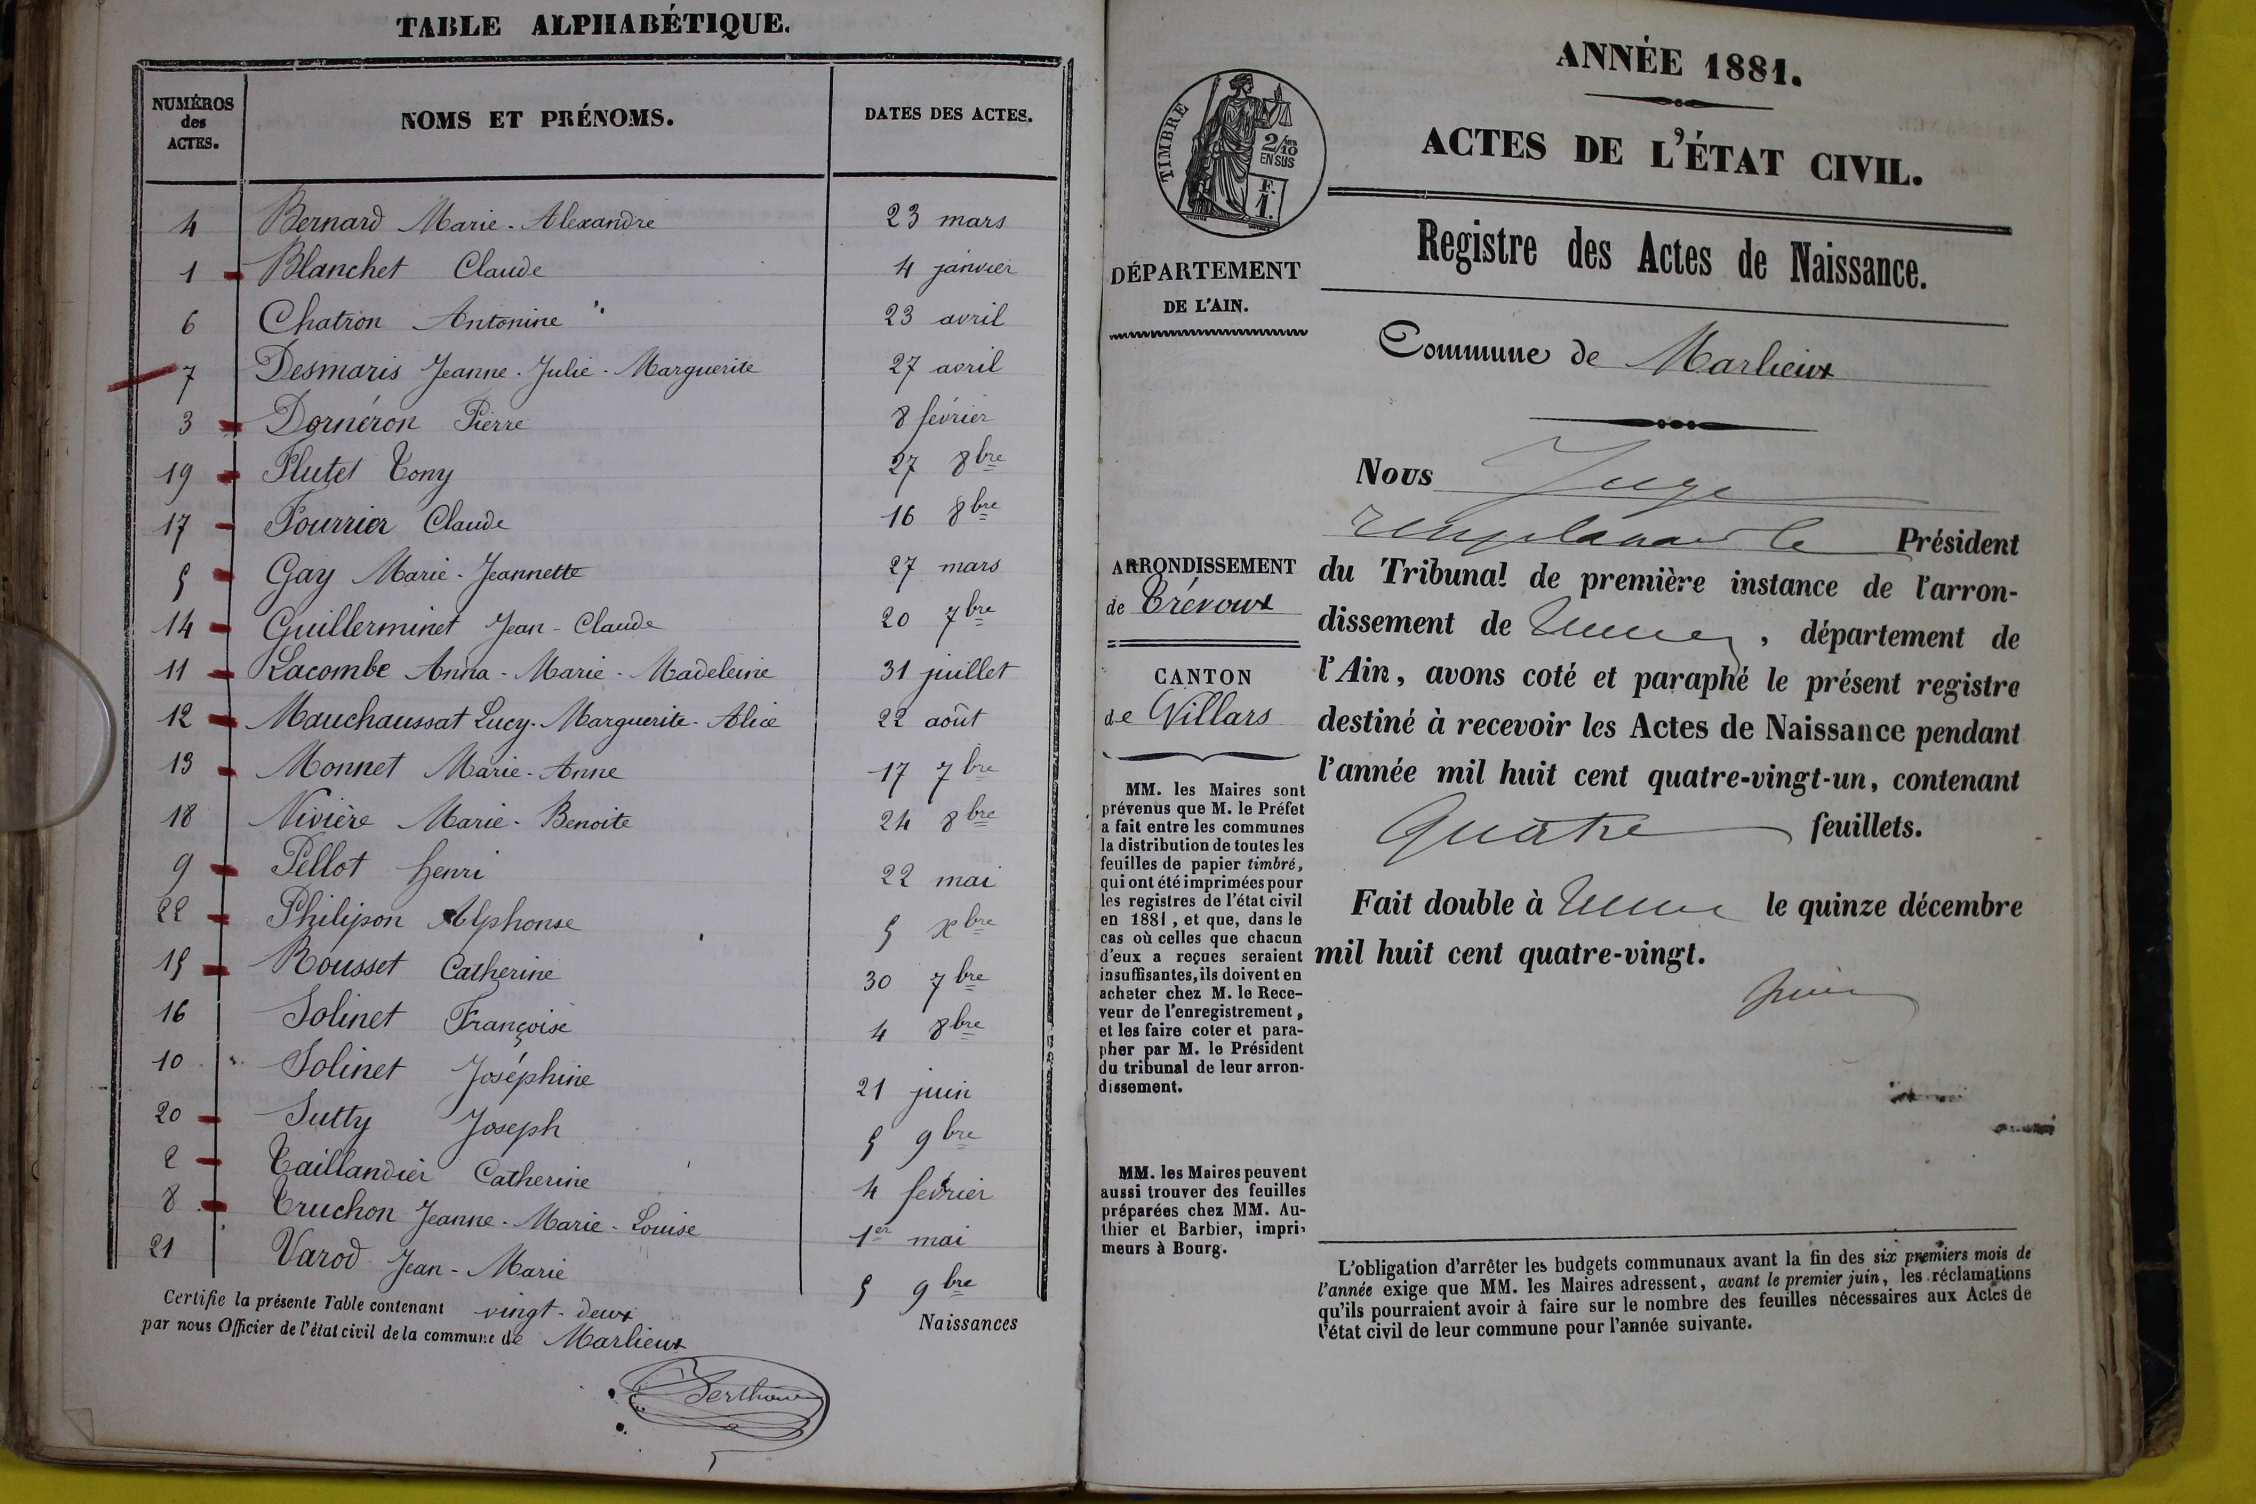 TABLE ALPHABÉTIQUE.
NUMÉROS des ACTES. NOMS ET PRÉNOMS. DATES DES ACTES.
4 Bernard Marie-Alexandre 23 mars
1 Blanchet Claude 4 janvier
6 Chatron Antonine 23 avril
7 Desmaris Jeanne-Julie-Marguerite 27 avril
3 Dornéron Pierre 8 février
19 Flutet Tony 27 8bre
17 Fourrier Claude 16 8bre
5 Gay Marie-Jeannette 27 mars
14 Guillerminet Jean-Claude 20 7bre
11 Lacombe Anna-Marie-Madeleine 31 juillet
12 Mauchaussat Lucy-Marguerite-Alice 22 août
13 Monnet Marie-Anne 17 7bre
18 Nivière Marie-Benoite 24 8bre
9 Pellot henri 22 mai
22 Philipon Alphonse 5 xbre
15 Rousset Catherine 30 7bre
16 Solinet Françoise 4 8bre
10 Solinet Joséphine 21 juin
20 Sutty Joseph 5 9bre
2 Taillandier Catherine 4 février
8 Truchon Jeanne-Marie-Louise 1er mai
21 Varod Jean-Marie 5 9bre
Certifie la présente Table contenant vingt-deux Naissances
par nous Officier de l'état civil de la commune de Marlieux
TIMBRE
2/10
EN SUS
F.
1.
DÉPARTEMENT
DE L'AIN.
ARRONDISSEMENT
de Trévoux
CANTON
de Villars
MM. les Maires sont
prévenus que M. le Préfet
a fait entre les communes
la distribution de toutes les
feuilles de papier timbré,
qui ont été imprimées pour
les registres de l'état civil
en 1881, et que, dans le
cas où celles que chacun
d'eux a reçues seraient
insuffisantes, ils doivent en
acheter chez M. le Rece-
veur de l'enregistrement,
et les faire coter et para-
pher par M. le Président
du tribunal de leur arron-
dissement.
MM. les Maires peuvent
aussi trouver des feuilles
préparées chez MM. Au-
thier et Barbier, impri-
meurs à Bourg.
ANNÉE 1881.
ACTES DE L'ÉTAT CIVIL.
Registre des Actes de Naissance.
Commune de Marlieux
Nous Juge
remplaçant le Président
du Tribunal de première instance de l'arron-
dissement de , département de
l'Ain, avons coté et paraphé le présent registre
destiné à recevoir les Actes de Naissance pendant
l'année mil huit cent quatre-vingt-un, contenant
Quatre feuillets.
Fait double à le quinze décembre
mil huit cent quatre-vingt.
L'obligation d'arrêter les budgets communaux avant la fin des six premiers mois de
l'année exige que MM. les Maires adressent, avant le premier juin, les réclamations
qu'ils pourraient avoir à faire sur le nombre des feuilles nécessaires aux Actes de
l'état civil de leur commune pour l'année suivante.